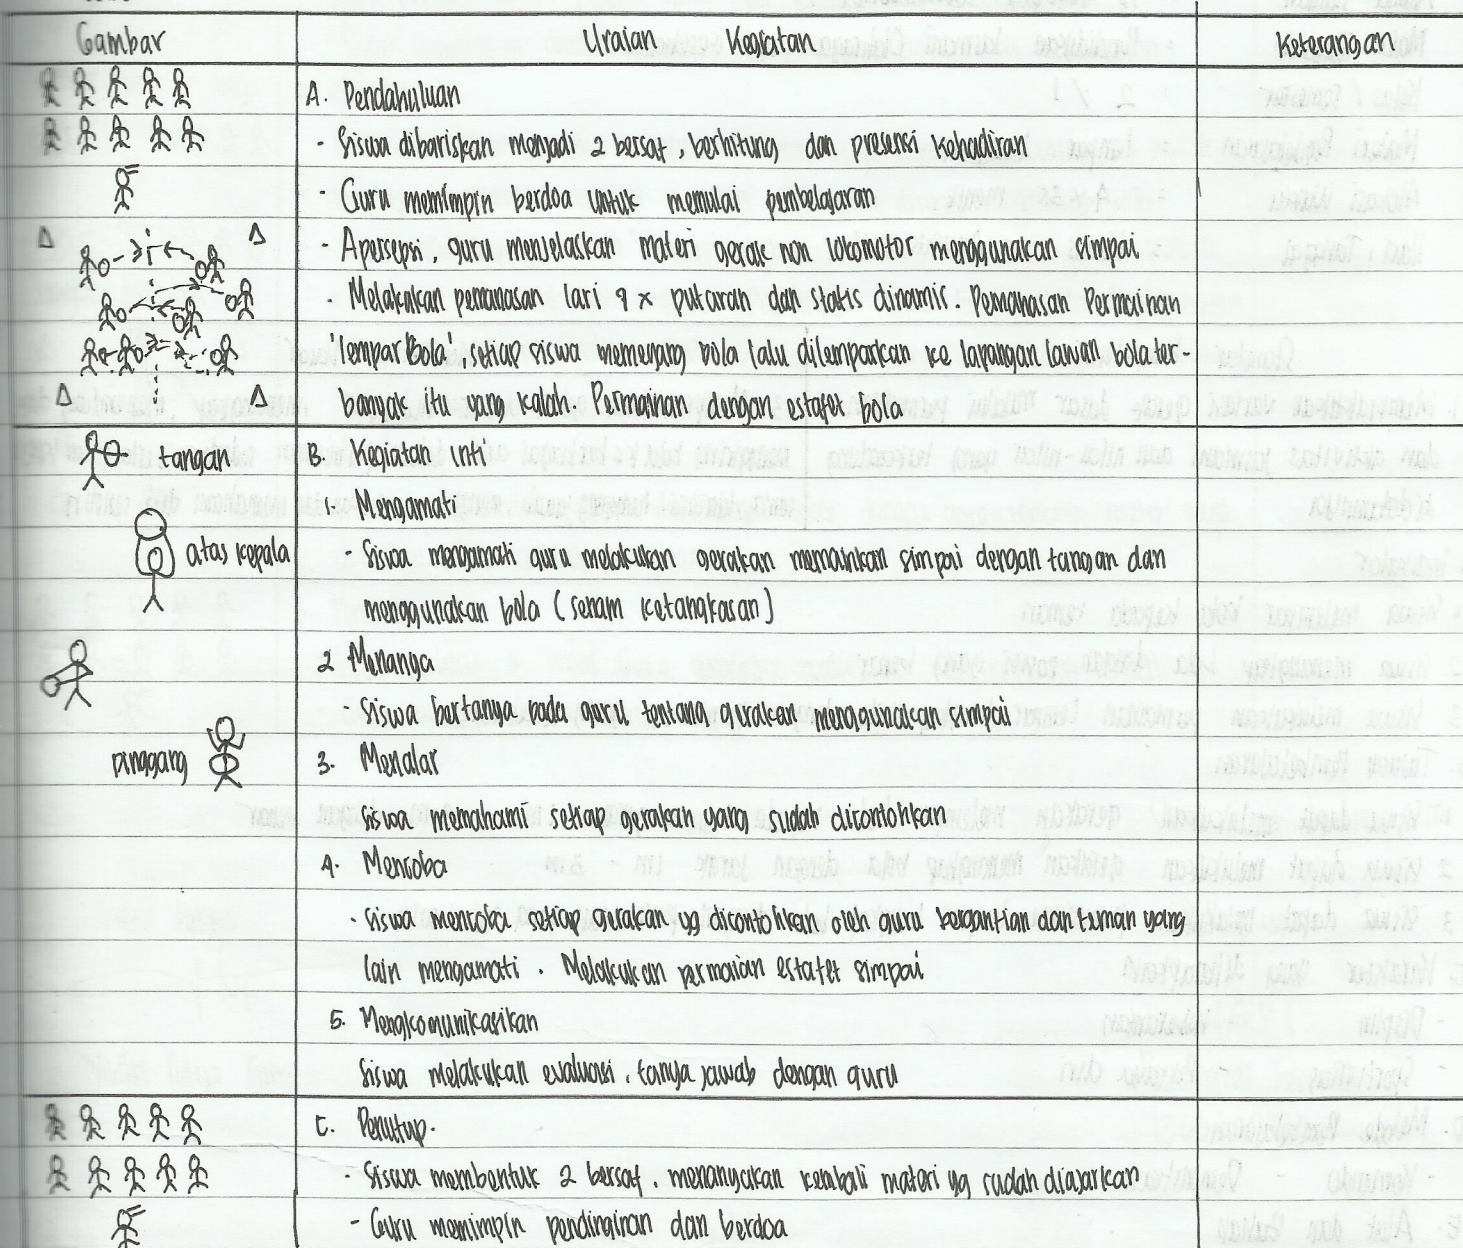 Gambar
Uraian Kegiatan
Keterangan
A. Pendahuluan
- Siswa dibariskan menjadi 2 bersaf, berhitung dan presensi kehadiran
- Guru memimpin berdoa untuk memulai pembelajaran
- Apersepsi, guru menjelaskan materi gerak non lokomotor menggunakan simpai
- Melakukan pemanasan lari 9 x putaran dan statis dinamis. Pemanasan Permainan
'lempar Bola', setiap siswa memegang bola lalu dilemparkan ke lapangan lawan bola ter-
banyak itu yang kalah. Permainan dengan estafet bola.
tangan
atas kepala
pinggang
B. Kegiatan Inti
1. Mengamati
- Siswa mengamati guru melakukan gerakan memainkan simpai dengan tangan dan
menggunakan bola (senam ketangkasan)
2 Menanya
- Siswa bertanya pada guru tentang gerakan menggunakan simpai
3. Menalar
Siswa memahami setiap gerakan yang sudah dicontohkan
4. Mencoba
- Siswa mencoba setiap gerakan yg dicontohkan oleh guru bergantian dan teman yang
lain mengamati. Melakukan permaian estafet simpai
5. Mengkomunikasikan
Siswa melakukan evaluasi, tanya jawab dengan guru
C. Penutup.
- Siswa membentuk 2 bersaf, menanyakan kembali materi yg sudah diajarkan
- Guru memimpin pendinginan dan berdoa